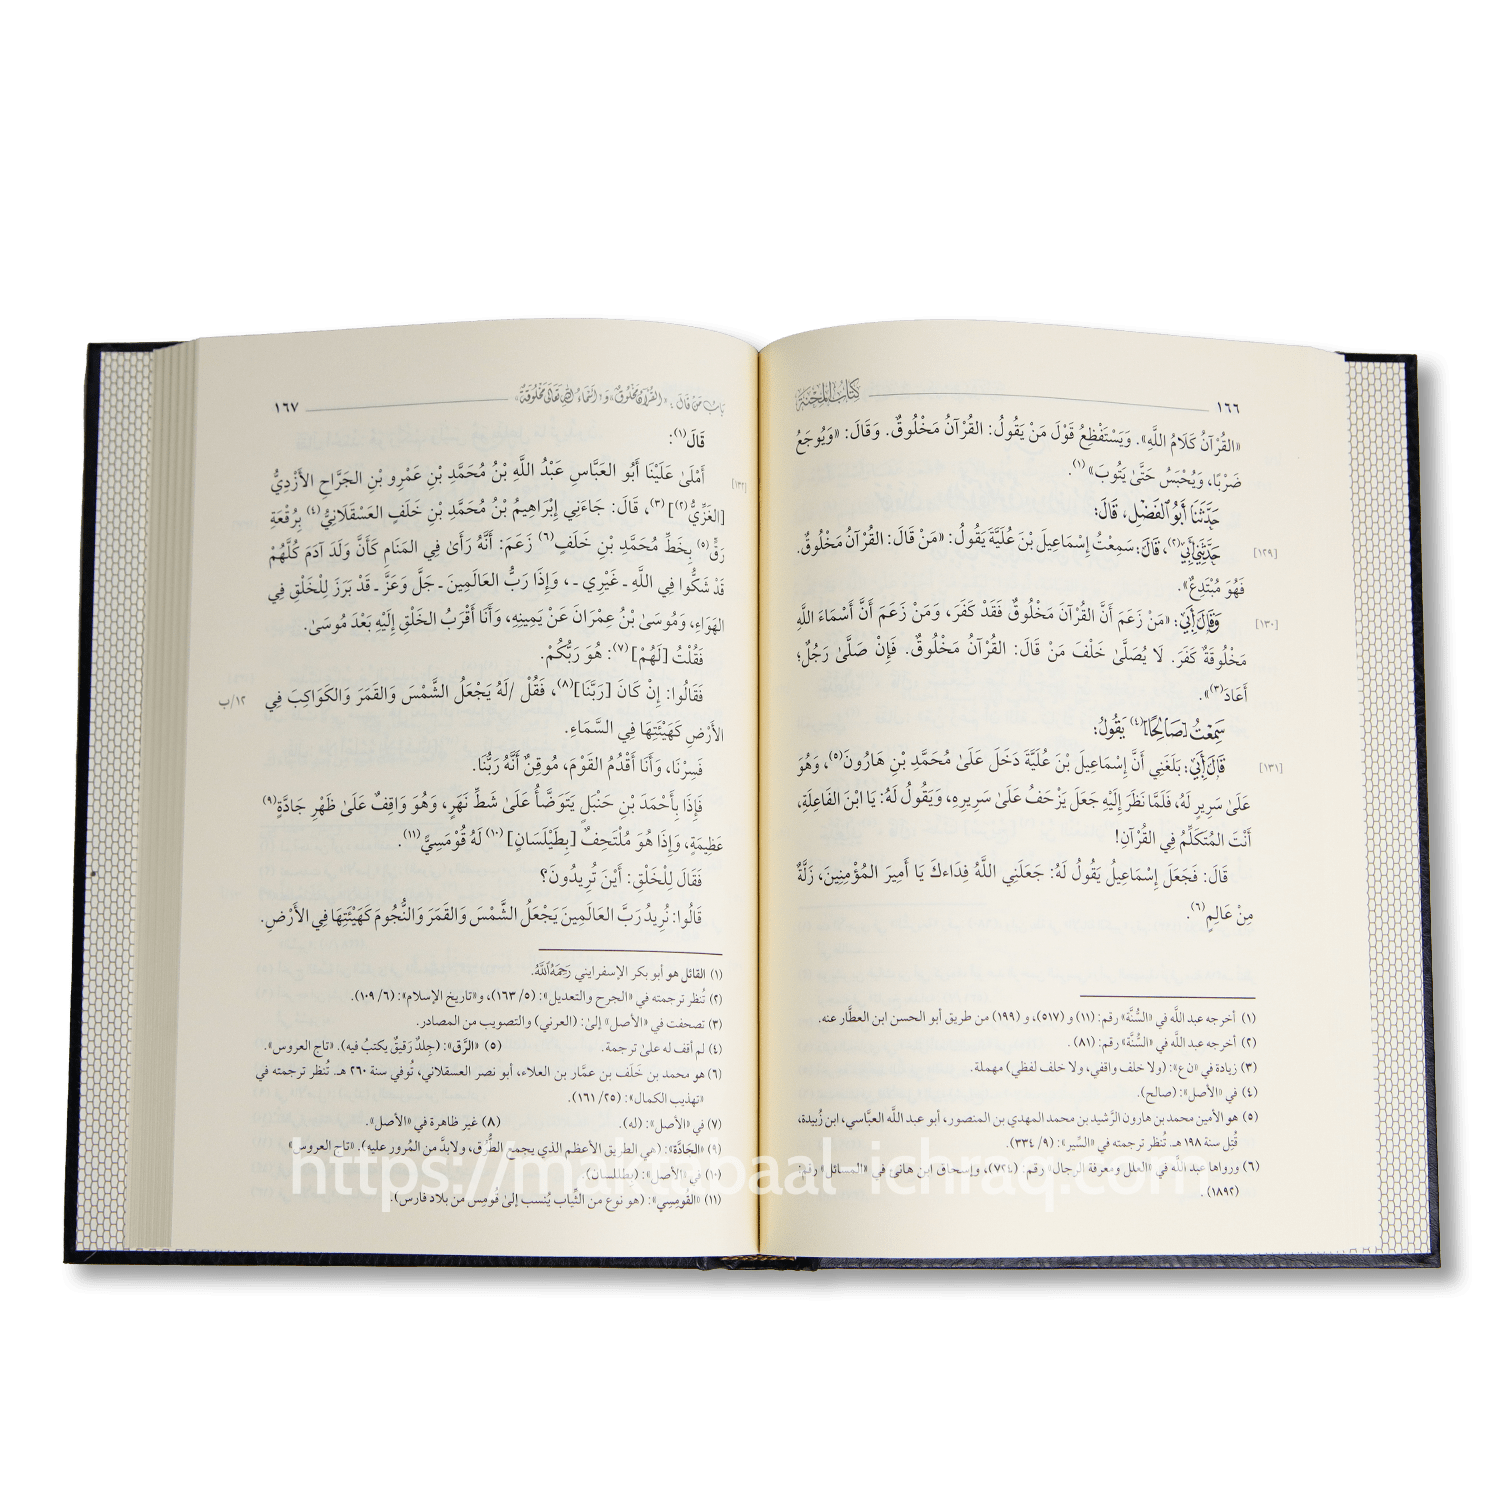 ١٦٦
كتاب المحنة
«القُرْآنُ كَلَامُ اللَّهِ». وَيَسْتَفْظِعُ قَوْلَ مَنْ يَقُولُ: القُرْآنُ مَخْلُوقٌ. وَقَالَ: «وَيُوجَعُ
ضَرْبًا، وَيُحْبَسُ حَتَّىٰ يَتُوبَ»(١).
حَدَّثَنَا أَبُو الفَضْلِ، قَالَ:
[١٢٩] حَدَّثَنِي أَبِي(٢)، قَالَ: سَمِعْتُ إِسْمَاعِيلَ بْنَ عُلَيَّةَ يَقُولُ: «مَنْ قَالَ: القُرْآنُ مَخْلُوقٌ.
فَهُوَ مُبْتَدِعٌ».
[١٣٠] وَقَالَ أَبِي: «مَنْ زَعَمَ أَنَّ القُرْآنَ مَخْلُوقٌ فَقَدْ كَفَرَ، وَمَنْ زَعَمَ أَنَّ أَسْمَاءَ اللَّهِ
مَخْلُوقَةٌ كَفَرَ. لَا يُصَلَّىٰ خَلْفَ مَنْ قَالَ: القُرْآنُ مَخْلُوقٌ. فَإِنْ صَلَّىٰ رَجُلٌ؛
أَعَادَ(٣)».
سَمِعْتُ [صَالِحًا](٤) يَقُولُ:
[١٣١] قَالَ أَبِي: بَلَغَنِي أَنَّ إِسْمَاعِيلَ بْنَ عُلَيَّةَ دَخَلَ عَلَىٰ مُحَمَّدِ بْنِ هَارُونَ(٥)، وَهُوَ
عَلَىٰ سَرِيرٍ لَهُ، فَلَمَّا نَظَرَ إِلَيْهِ جَعَلَ يَزْحَفُ عَلَىٰ سَرِيرِهِ، وَيَقُولُ لَهُ: يَا ابْنَ الفَاعِلَةِ،
أَنْتَ المُتَكَلِّمُ فِي القُرْآنِ!
قَالَ: فَجَعَلَ إِسْمَاعِيلُ يَقُولُ لَهُ: جَعَلَنِي اللَّهُ فِدَاءَكَ يَا أَمِيرَ المُؤْمِنِينَ، زَلَّةٌ
مِنْ عَالِمٍ(٦).
(١) أخرجه عبد اللَّه في «السُّنَّة» رقم: (١١) و(٥١٧)، و(١٩٩) من طريق أبو الحسن ابن العطَّار عنه.
(٢) أخرجه عبد اللَّه في «السُّنَّة» رقم: (٨١).
(٣) زيادة في «ن ع»: (ولا خلف واقفي، ولا خلف لفظي) مهملة.
(٤) في «الأصل»: (صالح).
(٥) هو الأمين محمد بن هارون الرَّشيد بن محمد المهدي بن المنصور، أبو عبد اللَّه العبَّاسي، ابن زُبيدة،
قُتِل سنة ١٩٨ هـ. تُنظر ترجمته في «السِّير»: (٩/ ٣٣٤).
(٦) ورواها عبد اللَّه في «العلل ومعرفة الرجال» رقم: (٧٢٤)، وإسحاق ابن هانئ في «المسائل» رقم:
(١٨٩٢).
باب من قال: «القرآن مخلوق» و«أسماء الله تعالى مخلوقة»
١٦٧
قَالَ(١):
[١٣٢] أَمْلَىٰ عَلَيْنَا أَبُو العَبَّاسِ عَبْدُ اللَّهِ بْنُ مُحَمَّدِ بْنِ عَمْرِو بْنِ الجَرَّاحِ الأَزْدِيُّ
[الغَزِّيُّ(٢)](٣)، قَالَ: جَاءَنِي إِبْرَاهِيمُ بْنُ مُحَمَّدِ بْنِ خَلَفٍ العَسْقَلَانِيُّ(٤) بِرُقْعَةِ
رَقٍّ(٥) بِخَطِّ مُحَمَّدِ بْنِ خَلَفٍ(٦) زَعَمَ: أَنَّهُ رَأَىٰ فِي المَنَامِ كَأَنَّ وَلَدَ آدَمَ كُلَّهُمْ
قَدْ شَكُّوا فِي اللَّهِ ـ غَيْرِي ـ، وَإِذَا رَبُّ العَالَمِينَ ـ جَلَّ وَعَزَّ ـ قَدْ بَرَزَ لِلْخَلْقِ فِي
الهَوَاءِ، وَمُوسَىٰ بْنُ عِمْرَانَ عَنْ يَمِينِهِ، وَأَنَا أَقْرَبُ الخَلْقِ إِلَيْهِ بَعْدَ مُوسَىٰ.
فَقُلْتُ [لَهُمْ](٧): هُوَ رَبُّكُمْ.
فَقَالُوا: إِنْ كَانَ [رَبَّنَا](٨)، فَقُلْ /لَهُ يَجْعَلُ الشَّمْسَ وَالقَمَرَ وَالكَوَاكِبَ فِي ١٢/ب
الأَرْضِ كَهَيْئَتِهَا فِي السَّمَاءِ.
فَسِرْنَا، وَأَنَا أَقْدُمُ القَوْمَ، مُوقِنٌ أَنَّهُ رَبُّنَا.
فَإِذَا بِأَحْمَدَ بْنِ حَنْبَلٍ يَتَوَضَّأُ عَلَىٰ شَطِّ نَهَرٍ، وَهُوَ وَاقِفٌ عَلَىٰ ظَهْرِ جَادَّةٍ(٩)
عَظِيمَةٍ، وَإِذَا هُوَ مُلْتَحِفٌ [بِطَيْلَسَانٍ](١٠) لَهُ قُوْمَسِيٍّ(١١).
فَقَالَ لِلْخَلْقِ: أَيْنَ تُرِيدُونَ؟
قَالُوا: نُرِيدُ رَبَّ العَالَمِينَ يَجْعَلُ الشَّمْسَ وَالقَمَرَ وَالنُّجُومَ كَهَيْئَتِهَا فِي الأَرْضِ.
(١) القائل هو أبو بكر الإسفرايني رَحِمَهُ اللَّهُ.
(٢) تُنظر ترجمته في «الجرح والتعديل»: (٥/ ١٦٣)، و«تاريخ الإسلام»: (٦/ ١٠٩).
(٣) تصحفت في «الأصل» إلىٰ: (العرني) والتصويب من المصادر.
(٤) لم أقف له علىٰ ترجمة. (٥) «الرَّق»: (جِلدٌ رَقيقٌ يكتبُ فيه). «تاج العروس».
(٦) هو محمد بن خَلَف بن عمَّار بن العلاء، أبو نصر العسقلاني، تُوفي سنة ٢٦٠ هـ. تُنظر ترجمته في
«تهذيب الكمال»: (٢٥/ ١٦١).
(٧) في «الأصل»: (له). (٨) غير ظاهرة في «الأصل».
(٩) «الجَادَّة»: (هي الطريق الأعظم الذي يجمع الطُّرُق، ولابدَّ من المُرور عليه). «تاج العروس»
(١٠) في «الأصل»: (بطللسان).
(١١) «القَومِسِي»: (هو نوع من الثِّياب يُنسب إلىٰ قُومِس من بلاد فارس).